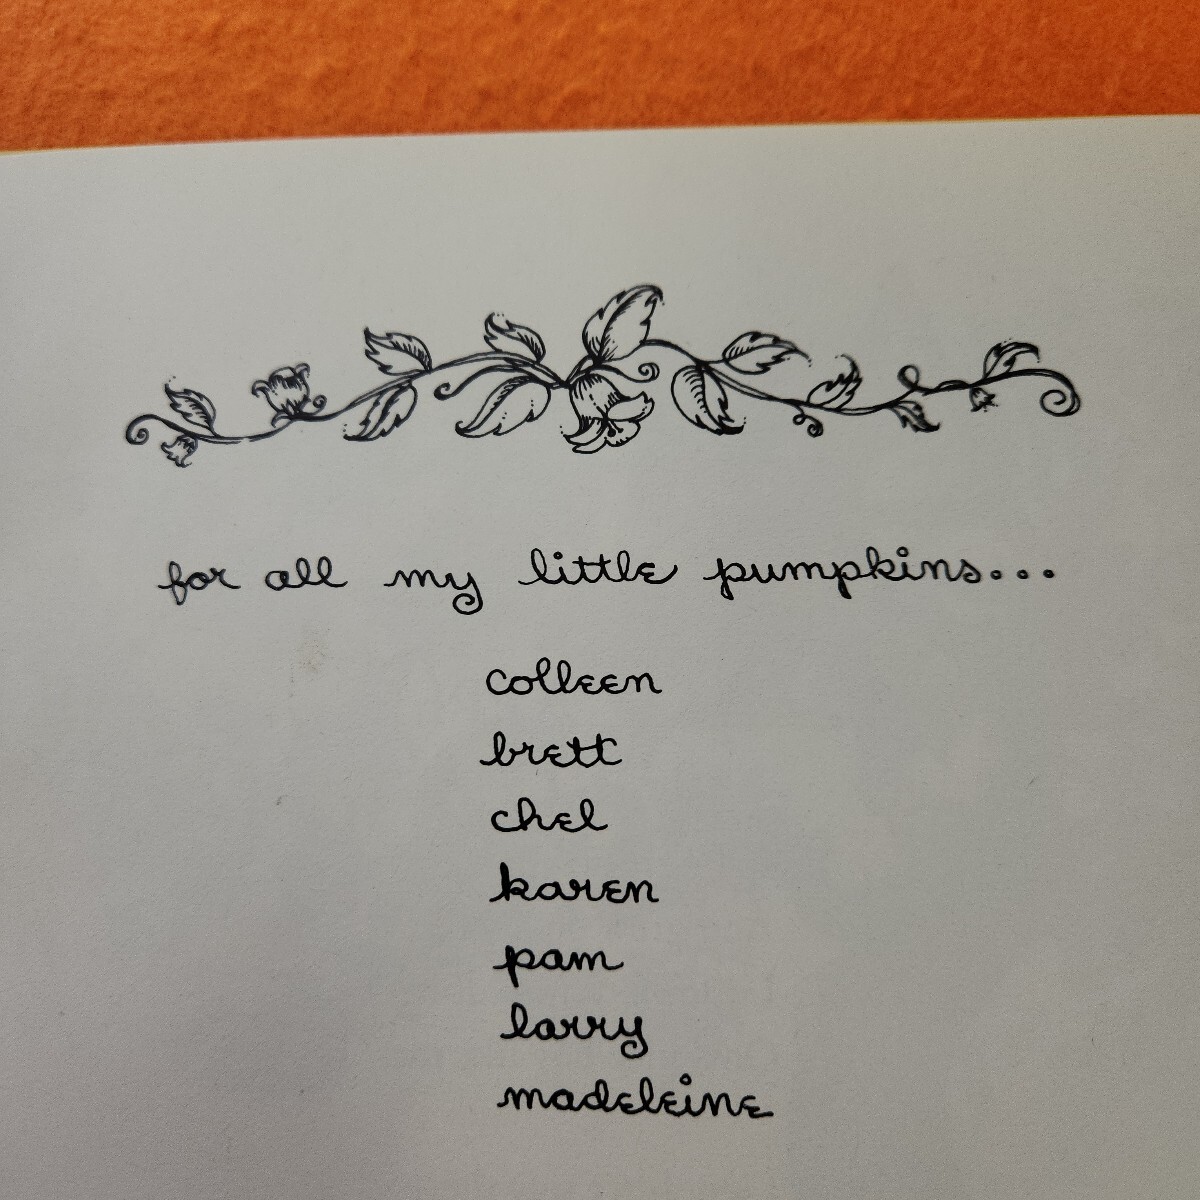 for all my little pumpkins...
colleen
brett
chel
karen
pam
larry
madeleine